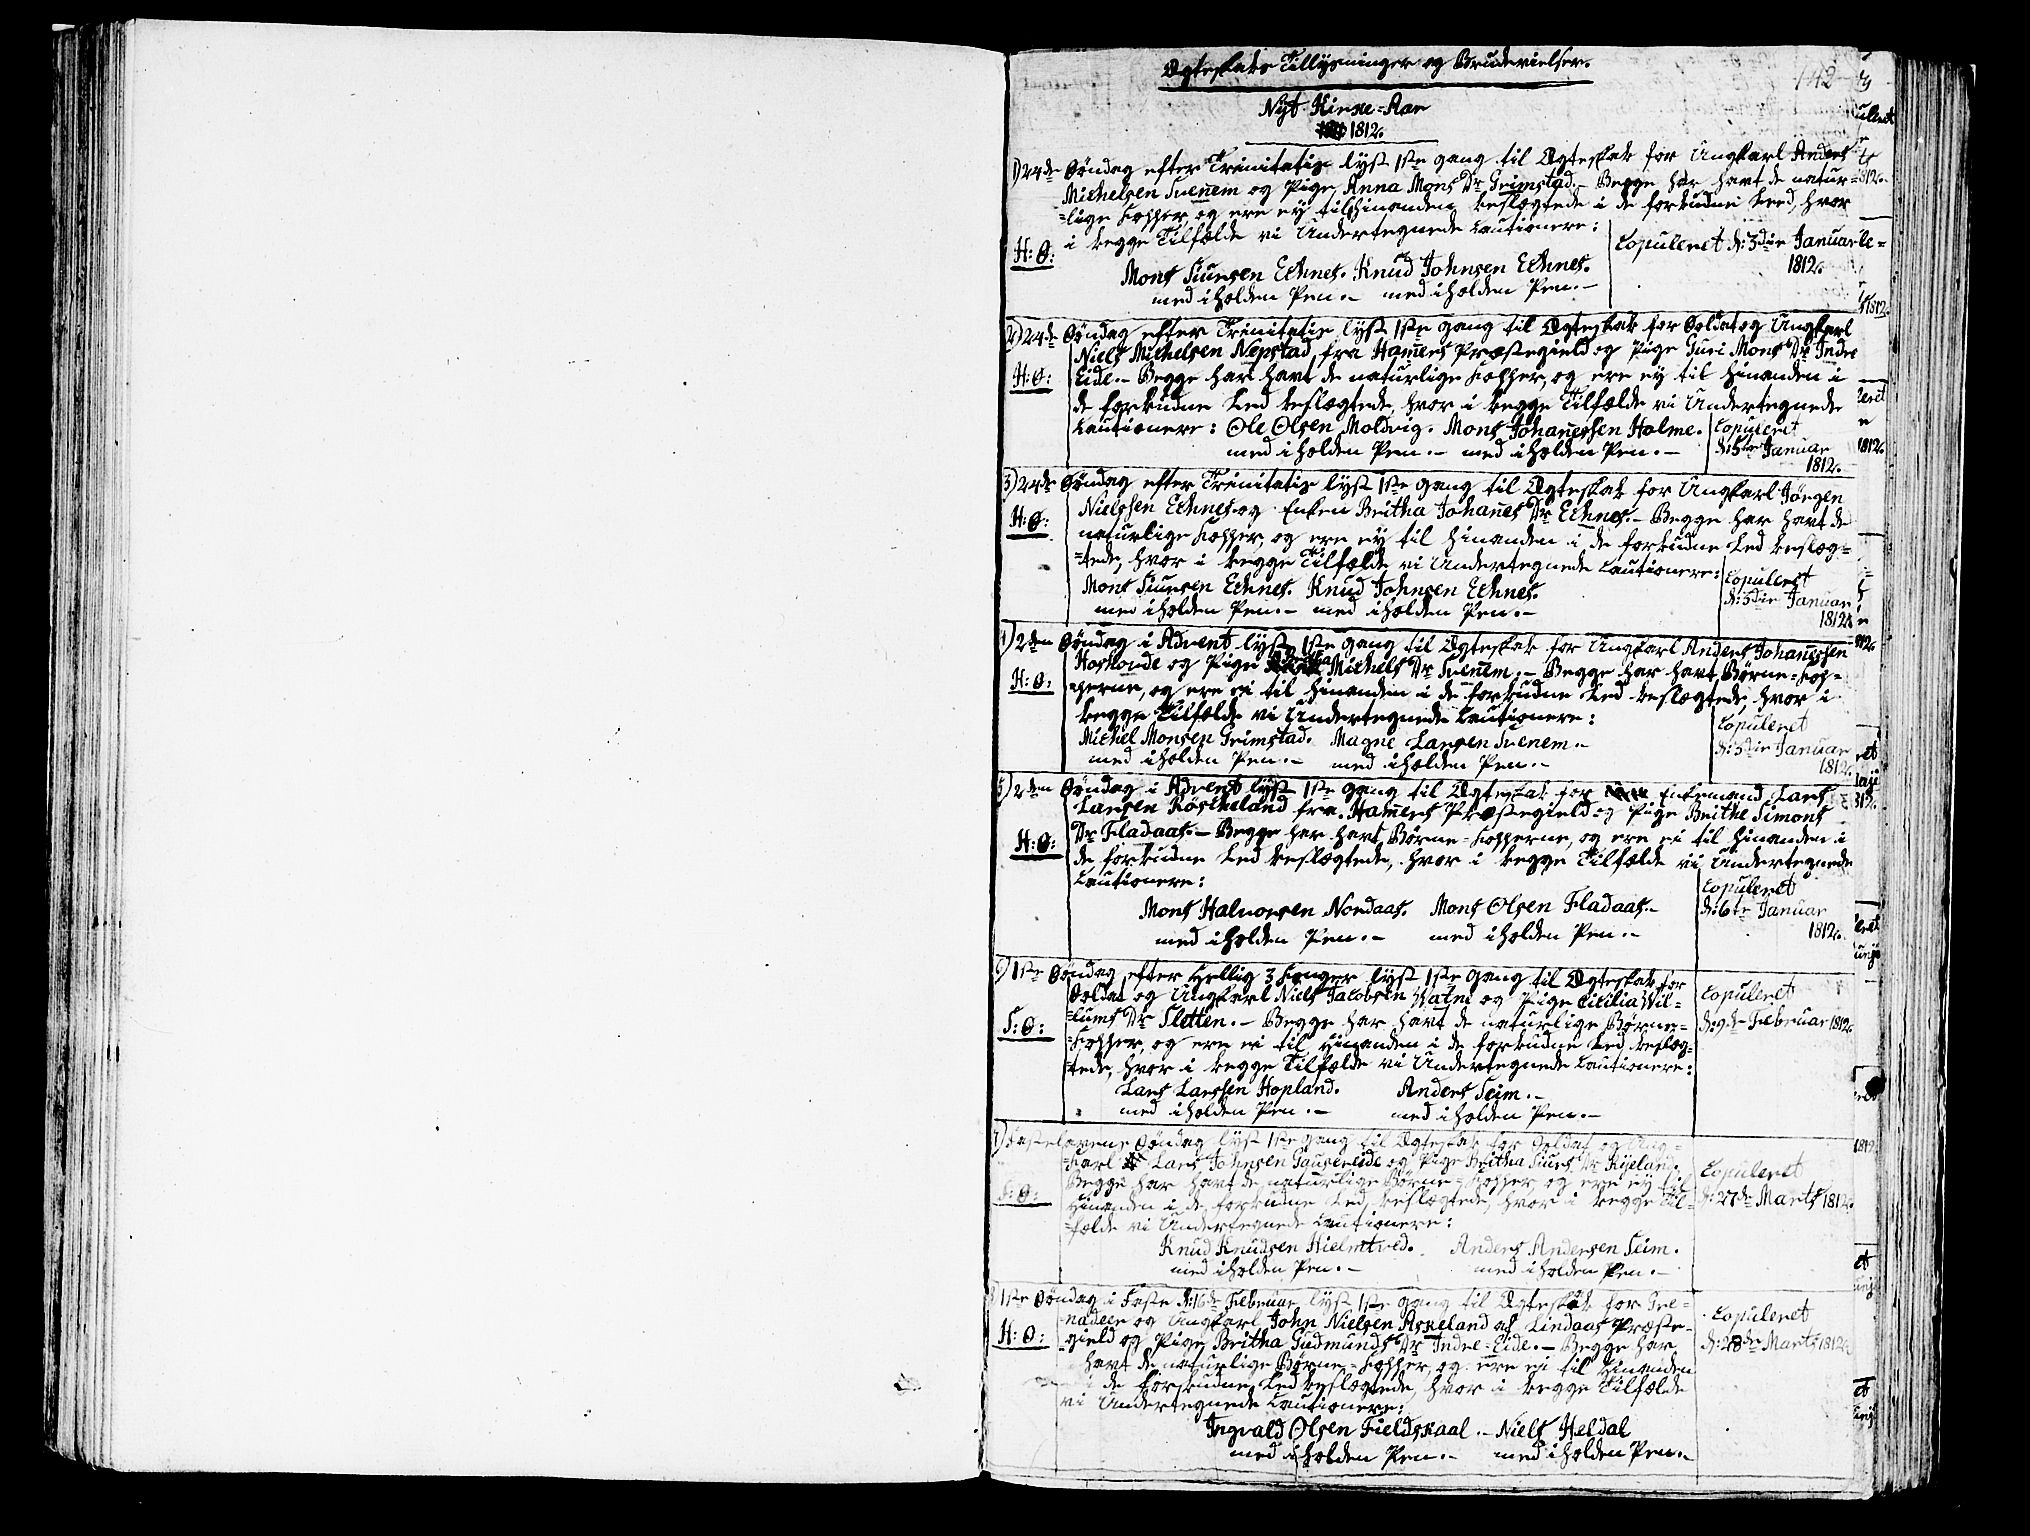 Ægteskabs Tillysninger og Brudevielser.
142
Nyt Kirke=Aar
1812.
1) 24de Søndag efter Trinitatis lyst 1ste gang til Ægteskab for Ungkarl Anders
Michelsen Svenem og Pige Anna Mons Dr Grimstad. Begge har havt de natur=
=lige Kopper, og ere ey til hinanden beslægtede i de forbudne Leed, hvor
i begge Tilfælde vi Undertegnede Cautionere:
H: Ø:
Copuleret d: 3die Januar
1812.
Mons Siursen Echnes. Knud Johnsen Echnes.
med iholden Pen. med iholden Pen.
2) 24de Søndag efter Trinitatis lyst 1ste gang til Ægteskab for Soldat og Ungkarl
Niels Michelsen Nepstad, fra Hamers Præstegield og Pige Guri Mons Dr Indre
H: Ø:
Eide. Begge har havt de naturlige Kopper, og ere ey til hinanden i
de forbudne Led beslægtede, hvor i begge Tilfælde vi Undertegnede
Cautionere: Ole Olsen Moldvig. Mons Johannessen Holme.
med iholden Pen. med iholden Pen.
Copuleret
d: 5te Januar
1812.
3) 24de Søndag efter Trinitatis lyst 1ste gang til Ægteskab for Ungkarl Jörgen
Nielssen Echnes og Enken Britha Johanes Dr Echnes. Begge har havt de
H: Ø:
naturlige Kopper, og ere ey til hinanden i de forbudne Led beslæg=
=tede, hvor i begge Tilfælde vi Undertegnede Cautionere:
Mons Siursen Echnes. Knud Johnsen Echnes.
med iholden Pen. med iholden Pen.
Copuleret
d: 5die Januar
1812.
4) 2den Søndag i Advent lyst 1ste gang til Ægteskab for Ungkarl Anders Johanessen
Hoskonde og Pige Michels Dr Svenem. Begge har havt Børne=Kop=
H: Ø:
=perne, og ere ei til hinanden i de forbudne Led beslægtede, hvor i
begge Tilfælde vi Undertegnede Cautionere:
Michel Monsen Grimstad. Magne Larsen Svenem.
med iholden Pen. med iholden Pen.
Copuleret
d: 5die Januar
1812.
5) 2den Søndag i Advent lyst 1ste gang til Ægteskab for Enkemand Lars
Larsen Röscheland fra Hamers Præstegield og Pige Brithe Simons
Dr Fladaas. Begge har havt Børne=Kopperne, og ere ei til hinanden i
H: Ø:
de forbudne Led beslægtede, hvor i begge Tilfælde vi Undertegnede
Cautionere:
Mons Halvorsen Nordaas. Mons Olsen Fladaas.
med iholden Pen. med iholden Pen.
Copuleret
d: 6te Januar
1812.
6) 1ste Søndag efter Hellig 3 Konger lyst 1ste gang til Ægteskab for
Soldat og Ungkarl Niels Jacobsen Watne og Pige Cicilia Wil=
S: Ø:
=lums Dr Sletten. Begge har havt de naturlige Børne=
=Kopper, og ere ei til hinanden i de forbudne Led beslæg=
=tede, hvor i begge Tilfælde vi Undertegnede Cautionere:
Lars Larssen Hopland. Anders Seim.
med iholden Pen. med iholden Pen.
Copuleret
d: 9de Februar 1812.
7) Fastelavens Søndag lyst 1ste gang til Ægteskab for Soldat og Ung=
=karl Lars Johnsen Gausereide og Pige Britha Siurs Dr Ryeland.
Begge har havt de naturlige Børne=Kopper og ere ey til
S: Ø:
hinanden i de forbudne Led beslægtede, hvor i begge Til=
=fælde vi Undertegnede Cautionere:
Knud Knudsen Hielmtved. Anders Andersen Seim.
med iholden Pen. med iholden Pen.
Copuleret
d: 27de Marts 1812.
8) 1ste Søndag i Faste d: 16de Februar lyst 1ste gang til Ægteskab for Gre=
=nadeer og Ungkarl John Nielsen Askeland af Lindaas Præste=
H: Ø:
=gield og Pige Britha Gudmunds Dr Indre=Eide. Begge har
havt de naturlige Børne=Kopper, og ere ei til hinanden
i de forbudne Led beslægtede, hvor i begge Tilfælde
vi Undertegnede Cautionere:
Ingvald Olsen Fieldskaal. Niels Heldal
med iholden Pen. med iholden Pen.
Copuleret
d: 28de Marts 1812.